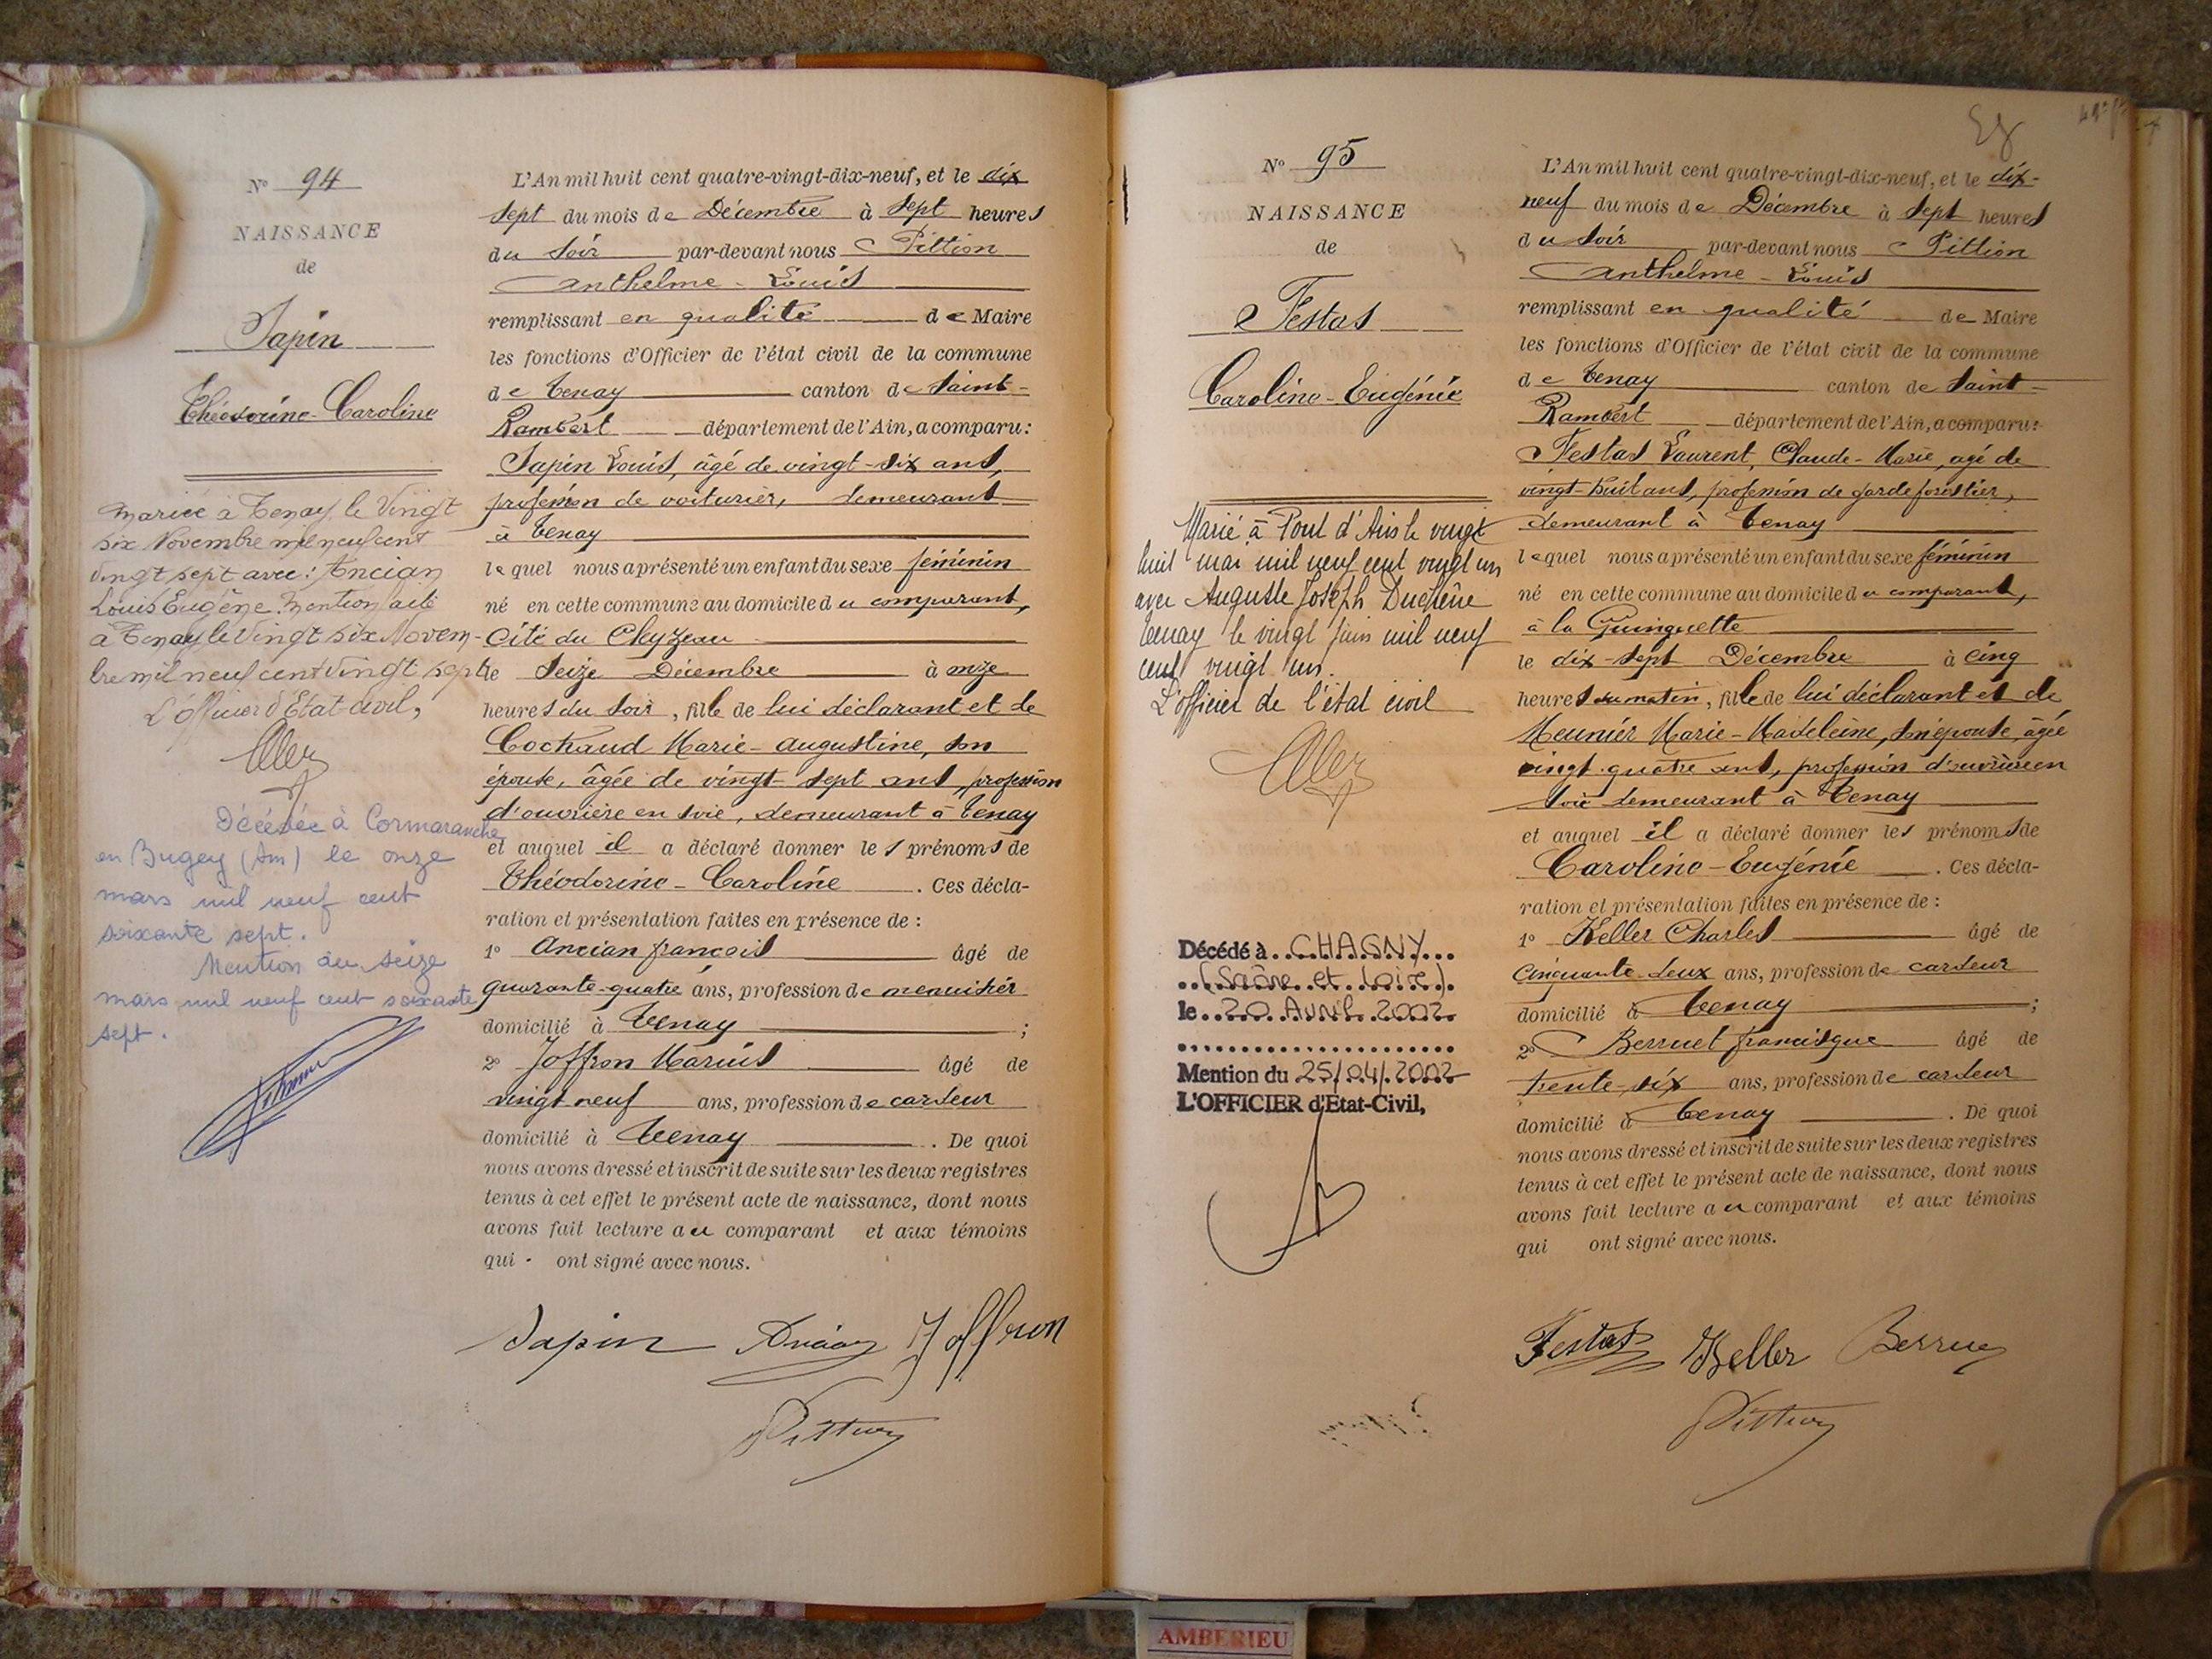 N° 94
NAISSANCE
de
Sapin
Théodorine-Caroline
mariée à Tenay le Vingt
six Novembre mil neuf cent
vingt sept avec : Ancian
Louis Eugène. Mention faite
à Tenay le Vingt six Novem-
bre mil neuf cent vingt sept
L'officier d'Etat-civil,
Décédée à Cormaranche
en Bugey (Ain) le onze
mars mil neuf cent
soixante sept.
Mention du seize
mars mil neuf cent soixante
sept.
L'An mil huit cent quatre-vingt-dix-neuf, et le dix
sept du mois de Décembre à Sept heures
du Soir par-devant nous Pittion
Anthelme - Louis
remplissant en qualité de Maire
les fonctions d'Officier de l'état civil de la commune
de Tenay canton de Saint-
Rambert département de l'Ain, a comparu :
Sapin Louis, âgé de vingt-six ans,
profession de voiturier, demeurant
à Tenay
lequel nous a présenté un enfant du sexe féminin
né en cette commune au domicile du comparant,
Cité du Chyzeau
le Seize Décembre à onze
heures du Soir, fille de lui déclarant et de
Cochaud Marie-Augustine, son
épouse, âgée de vingt-sept ans, profession
d'ouvrière en soie, demeurant à Tenay
et auquel il a déclaré donner les prénoms de
Théodorine-Caroline. Ces décla-
ration et présentation faites en présence de :
1° Ancian françois âgé de
quarante-quatre ans, profession de menuisier
domicilié à Tenay ;
2° Joffron Marius âgé de
vingt neuf ans, profession de cardeur
domicilié à Tenay . De quoi
nous avons dressé et inscrit de suite sur les deux registres
tenus à cet effet le présent acte de naissance, dont nous
avons fait lecture au comparant et aux témoins
qui - ont signé avec nous.
Sapin Ancian Joffron
Pittion
N° 95
NAISSANCE
de
Festas
Caroline-Eugénie
Marié à Pont d'Ain le vingt
huit mai mil neuf cent vingt un
avec Auguste Joseph Duchêne
Tenay le vingt juin mil neuf
cent vingt un.
L'officier de l'état civil
Décédé à CHAGNY
(Saône et Loire)
le 20 Avril 2002
Mention du 25/04/2002
L'OFFICIER d'Etat-Civil,
L'An mil huit cent quatre-vingt-dix-neuf, et le dix-
neuf du mois de Décembre à Sept heures
du Soir par-devant nous Pittion
Anthelme - Louis
remplissant en qualité de Maire
les fonctions d'Officier de l'état civil de la commune
de Tenay canton de Saint-
Rambert département de l'Ain, a comparu :
Festas Laurent, Claude-Marie, agé de
vingt-huit ans, profession de garde forestier,
demeurant à Tenay
lequel nous a présenté un enfant du sexe féminin
né en cette commune au domicile du comparant,
à la Guinguette
le dix-sept Décembre à cinq
heures du matin, fille de lui déclarant et de
Meunier Marie-Madeleine, son épouse, âgée
vingt-quatre ans, profession d'ouvrière en
soie demeurant à Tenay
et auquel il a déclaré donner les prénoms de
Caroline-Eugénie. Ces décla-
ration et présentation faites en présence de :
1° Keller Charles âgé de
cinquante-deux ans, profession de cardeur
domicilié à Tenay ;
2° Berruet francisque âgé de
trente-six ans, profession de cardeur
domicilié à Tenay . De quoi
nous avons dressé et inscrit de suite sur les deux registres
tenus à cet effet le présent acte de naissance, dont nous
avons fait lecture au comparant et aux témoins
qui ont signé avec nous.
Festas Keller Berruet
Pittion
AMBERIEU